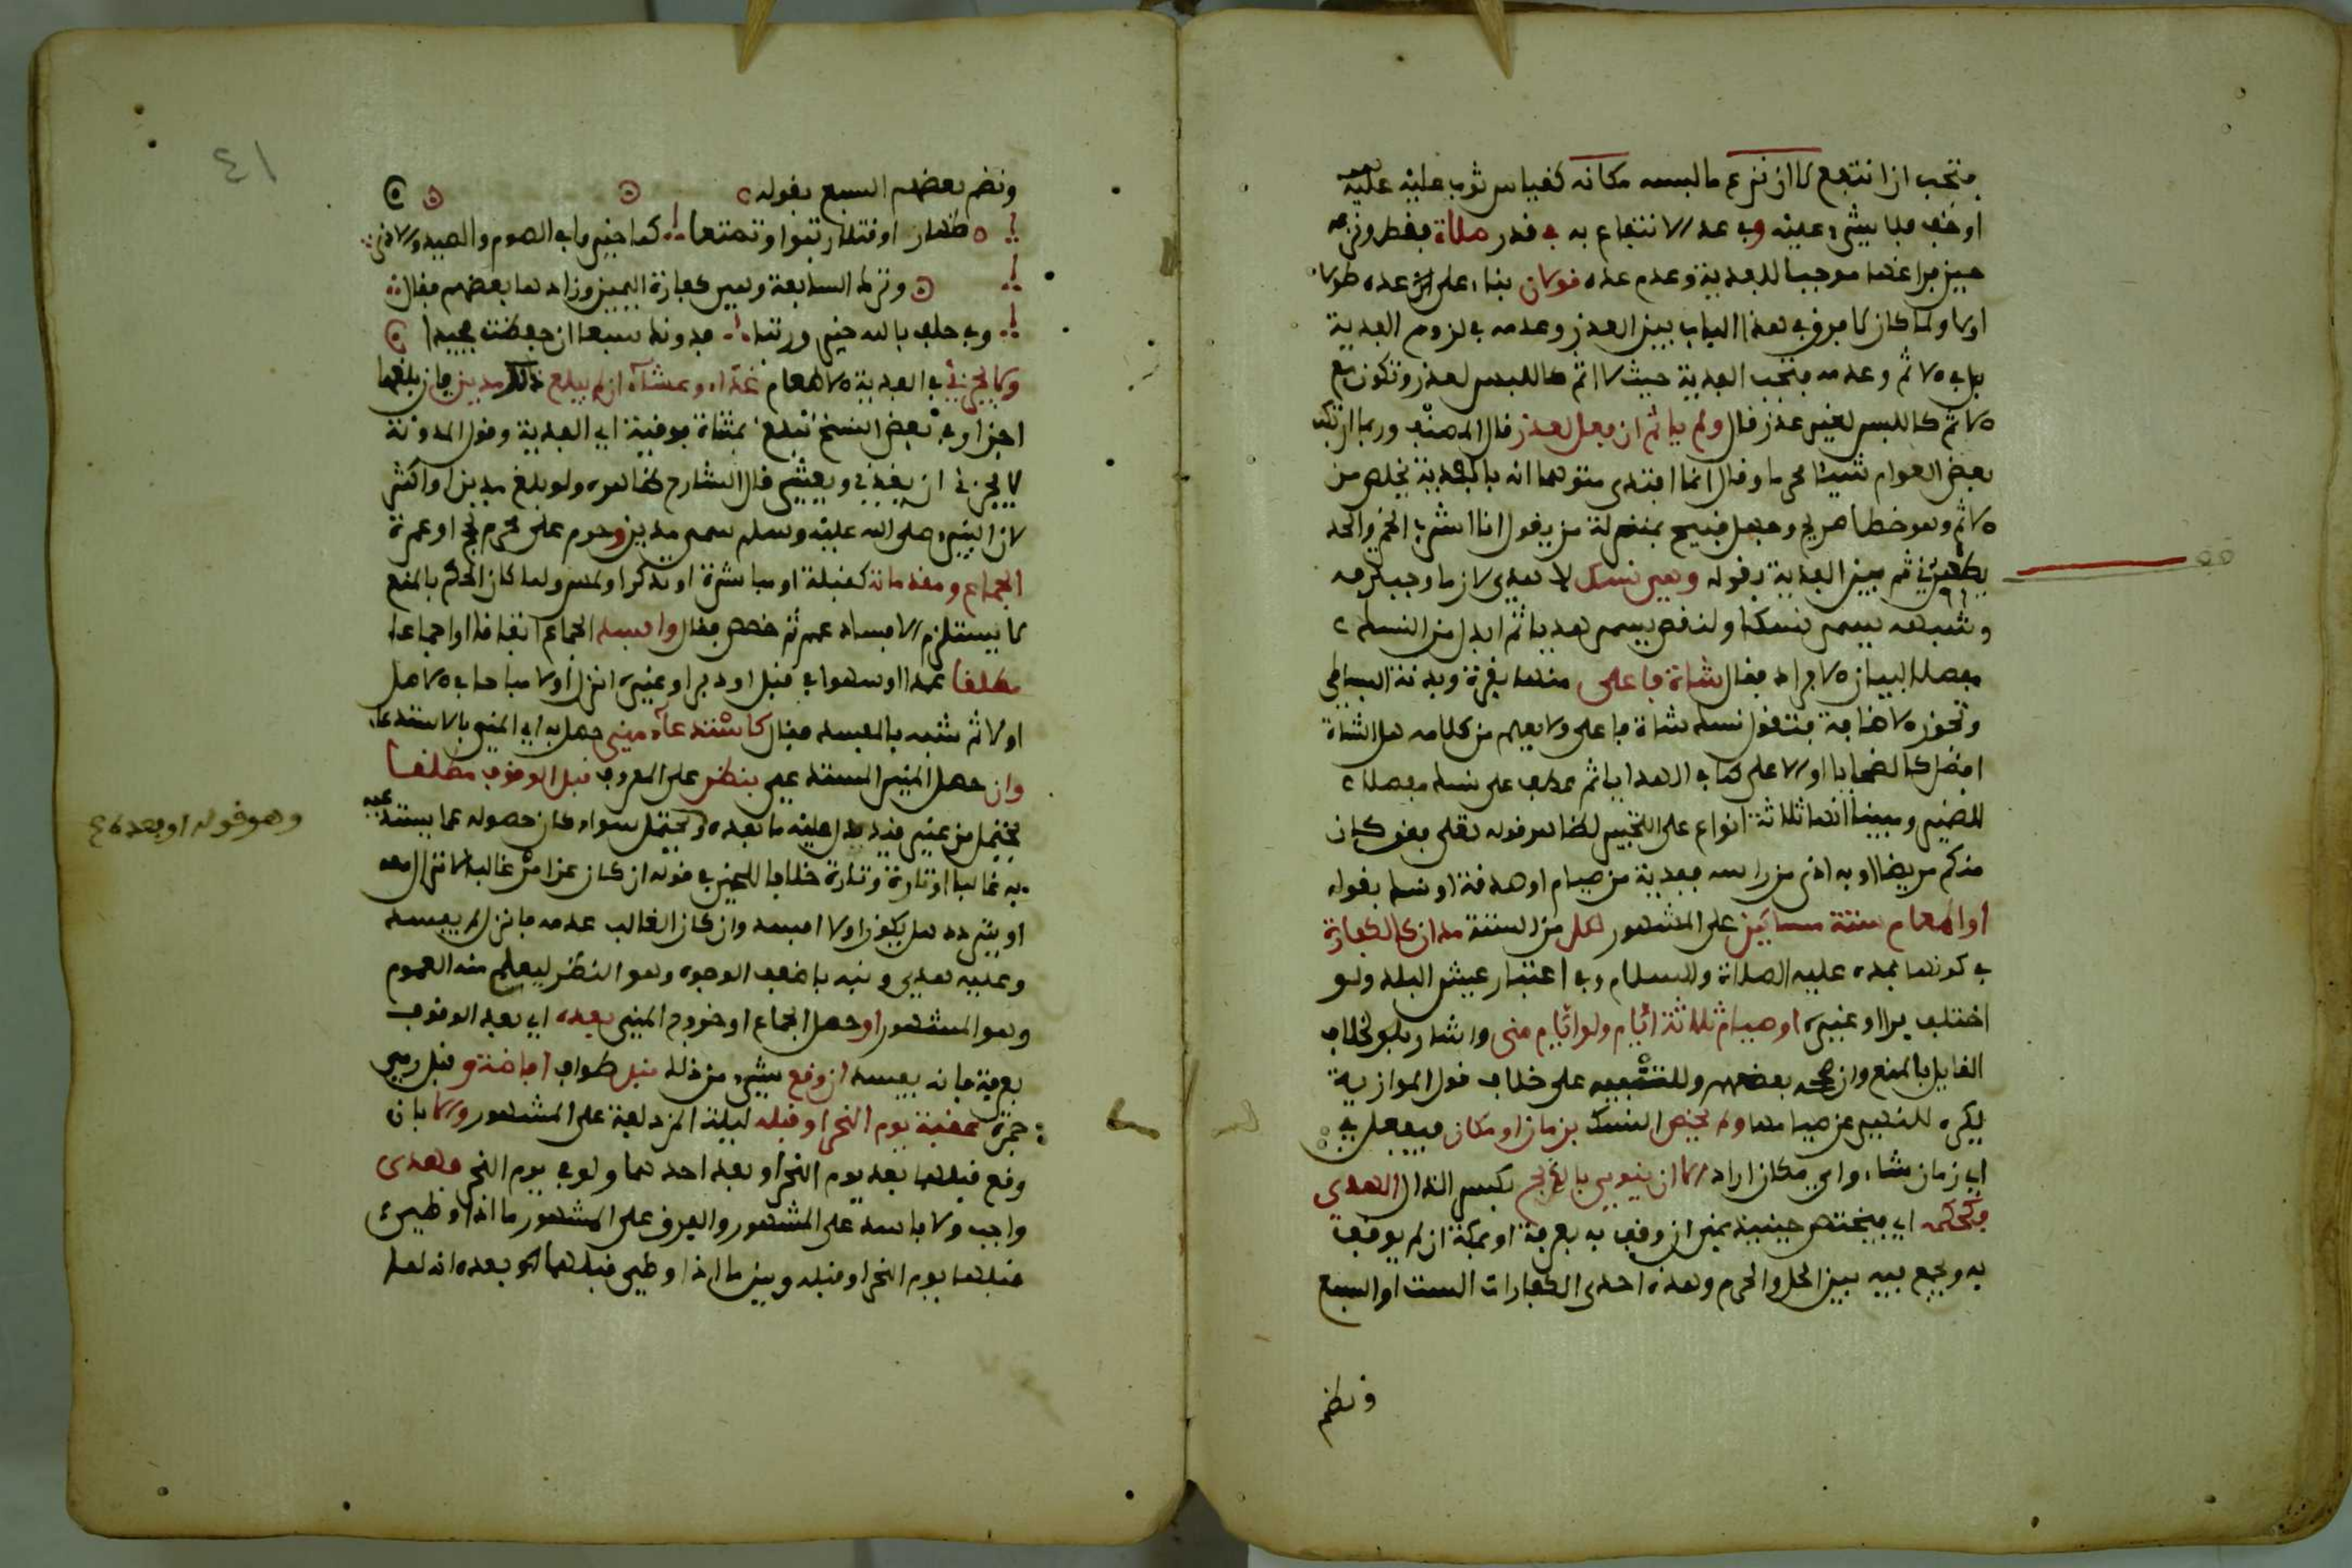 فتجب ان انتفع لا ان نزع ما لبسه مكانه كقياس ثوب عليه
او خف فلا شيء عليه وفي عد الانتفاع به في قدر صلاة فقط ونزعه
حينئذ موجبا للفدية وعدم عده قولان بناء على عده طولا
اولا ولما كان لا فرق في هذا الباب بين العذر وعدمه في لزوم الفدية
بل في الاثم وعدمه فتجب الفدية حيث لا اثم كاللبس لعذر وتكون مع
الاثم كاللبس لغير عذر قال ولم ياثم ان فعل لعذر قال المصنف وربما ارتكب
بعض العوام شيئا محرما وقال انما افتدى متوهما انه بالفدية يخلص من
الاثم وهو خطا صريح وجهل قبيح بمنزلة من يقول انا اشرب الخمر والحد
يطهرني ثم بين الفدية بقوله وهي نسك لا هدي لان ما وجب لترفه
وشبهه يسمى نسكا ولنقص يسمى هديا ثم ابدل من النسك
مفصلا لبيان الافراد فقال شاة فاعلى منها بقرة وبدنة البساطي
وتجوز الاضافة فتقول نسك شاة فاعلى ولا يعلم من كلامه هل الشاة
افضل كالضحايا او الاعلى كما في الهدايا ثم عطف على نسك مفصلا
للمضير ومبينا انها ثلاثة انواع على التخيير لظاهر قوله تعلى فمن كان
منكم مريضا او به اذى من راسه ففدية من صيام او صدقة او نسك بقوله
او اطعام ستة مساكين على المشهور لكل من الستة مدان كالكفارة
في كونها بمده عليه الصلاة والسلام وفي اعتبار عيش البلد ولو
اختلف برا او غيره او صيام ثلاثة ايام ولو ايام منى واشار بلو لخلاف
القايل بالمنع وان صححه بعضهم وللتنبيه على خلاف قول الموازية
يكره للنهي عن صيامها ولم يختص النسك بزمان او مكان فيفعل في
اي زمان شاء واي مكان اراد الا ان ينوي بالذبح بكسر الذال الهدي
فكحكمه اي فيختص حينئذ بمنى ان وقف به بعرفة او بمكة ان لم يوقف
به ويجمع فيه بين الحل والحرم وهذه احدى الكفارات الست او السبع
ونظم
٤١
ونظم بعضهم السبع بقوله
ظهار او قتلا رتبوا وتمتعا كما خيروا في الصوم والصيد والاذى
وترك السابعة وهي كفارة اليمين وزادها بعضهم فقال
وفي حلف بالله خير ورتبا فدونك سبعا ان حفظت مجيدا
ولا يجزئ في الفدية الاطعام غداء وعشاء ان لم يبلغ ذلك مدين فان بلغهما
اجزا وفي بعض النسخ تبلغ بمثناة فوقية اي الفدية وقول المدونة
لا يجزئ ان يغذي ويعشي قال الشارح ظاهره ولو بلغ مدين او اكثر
لان النبي صلى الله عليه وسلم سمى مدين وحرم على محرم لحج او عمرة
الجماع ومقدماته كقبلة او مباشرة او تذكر او لمس ولما كان الحكم بالمنع
لا يستلزم الافساد عم ثم خصص فقال وافسد الجماع اتفاقا او اجماعا
مطلقا عمدا او سهوا في قبل او دبر او غيره انزل اولا مباحا في الاصل
اولا ثم شبه بالمفسد فقال كاستدعاء مني حصل به اي المني بالاستدعاء
وان حصل المني المستدعى بنظر على المعروف قبل الوقوف مطلقا
يحتمل من غير قيد يدل عليه ما بعده ويحتمل سواء كان حصوله عما يستدعيه
به غالبا او تارة وتارة خلافا للخمي في قوله ان كان عن امر غالبه لا انزال معه
او يتردد هل يكون اولا افسد وان كان الغالب عدمه فانزل لم يفسد
وعليه هدي ونبه باضعف الوجوه وهو النظر ليعلم منه العموم
وهو المشهور او حصل الجماع او خروج المني بعده اي بعد الوقوف
بعرفة فانه يفسد ان وقع شيء من ذلك قبل طواف افاضة وقبل رمي
جمرة عقبة يوم النحر او قبله ليلة المزدلفة على المشهور والا بان
وقع قبلهما بعد يوم النحر او بعد احدهما ولو في يوم النحر فهدي
واجب ولا فاسد على المشهور والفرق على المشهور ما اذا وطئ
قبلهما يوم النحر او قبله وبين ما اذا وطئ قبلهما او بعده انه لعل
وهو قوله او بعده